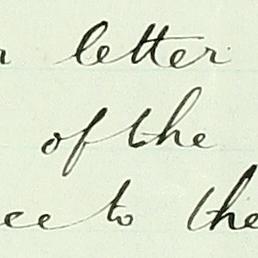 r letter
of the
ce to the